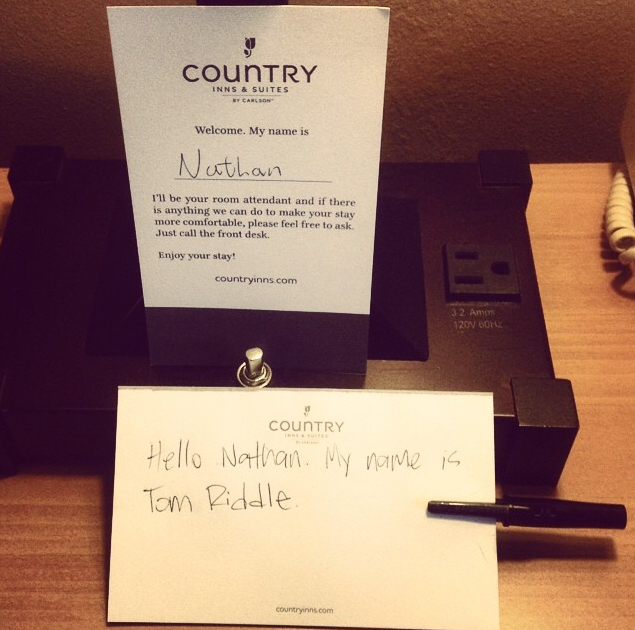 COUNTRY
INNS & SUITES
BY CARLSON™
Welcome. My name is
Nathan
I'll be your room attendant and if there
is anything we can do to make your stay
more comfortable, please feel free to ask.
Just call the front desk.
Enjoy your stay!
countryinns.com
3.2 Amm
120V 60Hz
COUNTRY
INNS & SUITES
BY CARLSON
Hello Nathan. My name is
Tom Riddle.
countryinns.com